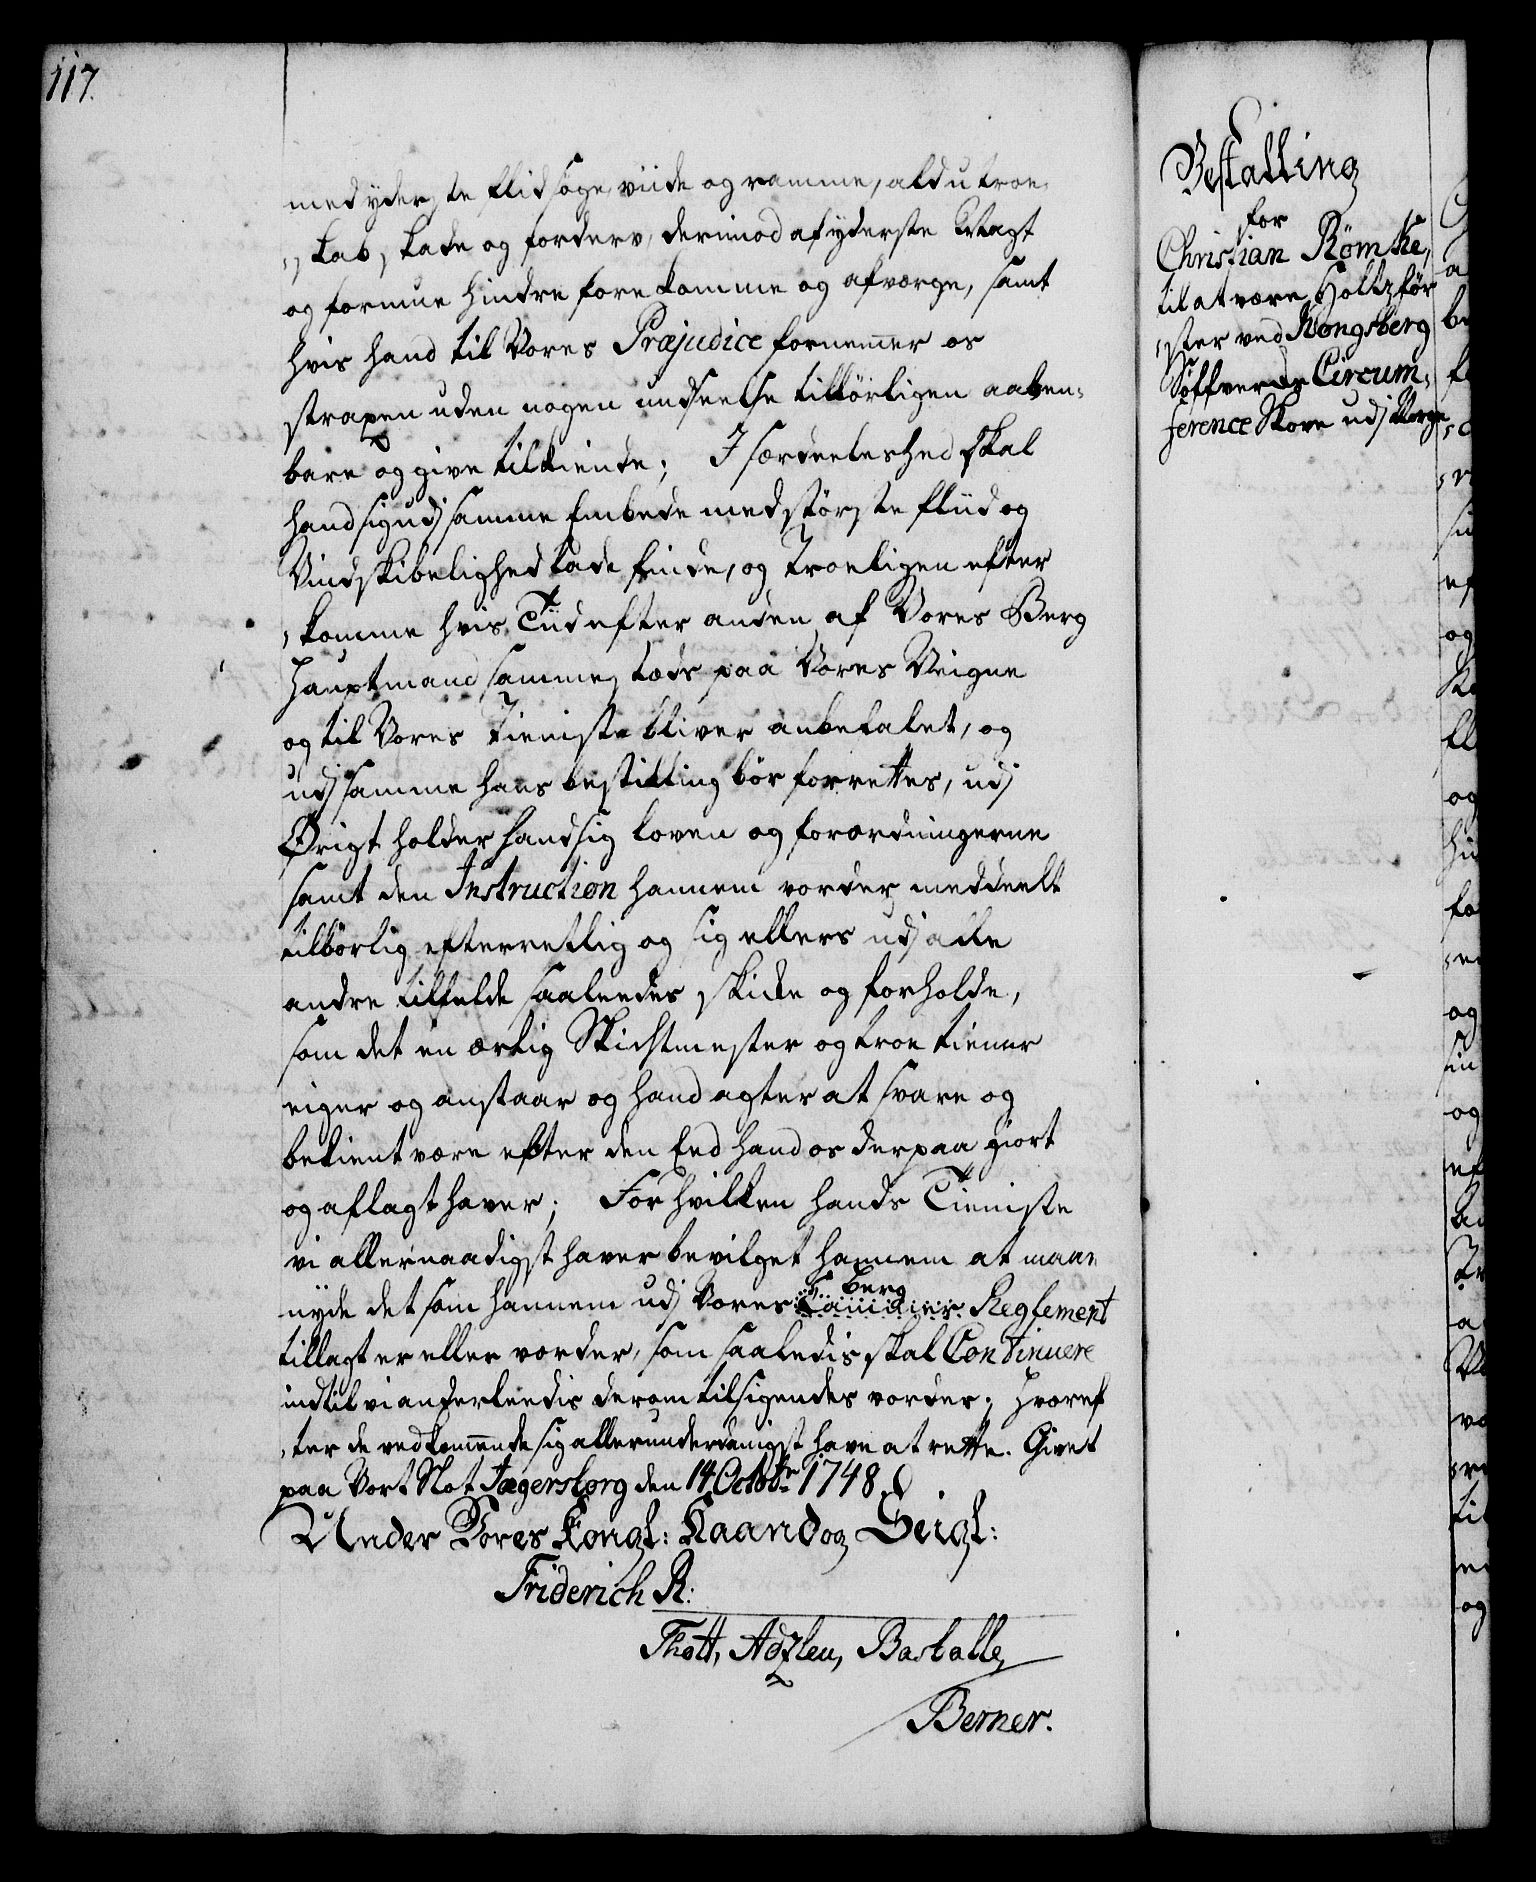 117.
med yderste flid søge viide og ramme, ald utroe,
,skab, skade og forderv, derimod af yderste Magt
og formue hindre forekomme og afværge, samt
hvis hand til Vores Præjudice fornemer os
straxen uden nogen undseelse tilbörligen aaben,
bare og give tilkiende; I særdeeleshed skal
hand sig udj samme Embede med störste fliid og
Vindskibelighed lade finde, og Troeligen efter
,komme hvis Tiid efter anden af Vores Berg
Hauptmand sammestæds paa Vores Veigne
og til Vores Tieniste bliver anbefalet, og
udj samme hans bestilling bör forrettes, udj
Øvrigt holder hand sig loven og forordningerne
samt den Instruction hannem vorder meddeelt
tilbörlig efterrettlig og sig ellers udj alle
andre tilfelde saaleedes skicke og forholde,
som det en ærlig Skichtmester og troe tiener
eigner og anstaar og hand agter at svare og
bekient være efter den Eed hand os derpaa giort
og aflagt haver; For hvilken hands Tieniste
vi allernaadigst haver bevilget hannem at maae
nyde det som hannem udj Vores Berg Reglement
tillagt er eller vorder, som saaledis skal Continuere
indtil vi anderleedis derom tilsigendes vorder; Hvoref
,ter de vedkomende sig allerunderdanigst have at rette. Givet
paa Vort Slot Jægersborg den 14 Octobr 1748
Under Vores Kongl: Haand og Seigl:
Friderich R:
Thott, Adzleu, Barballe,
Berner.
Bestalling
for
Christian Römke,
til at være Holtzför
,ster ved Kongsberg
Sölfverds Circum,
ference Skove udj Norge